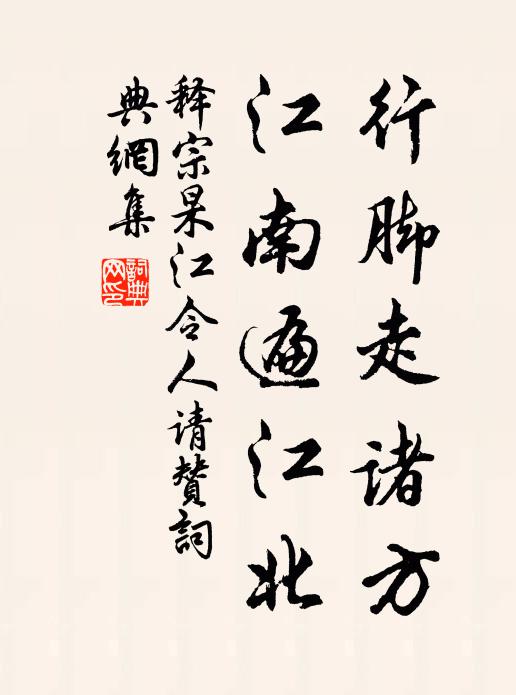 行脚走诸方
江南遍江北
释宗杲江令人请赞词
典網集
詞典网印